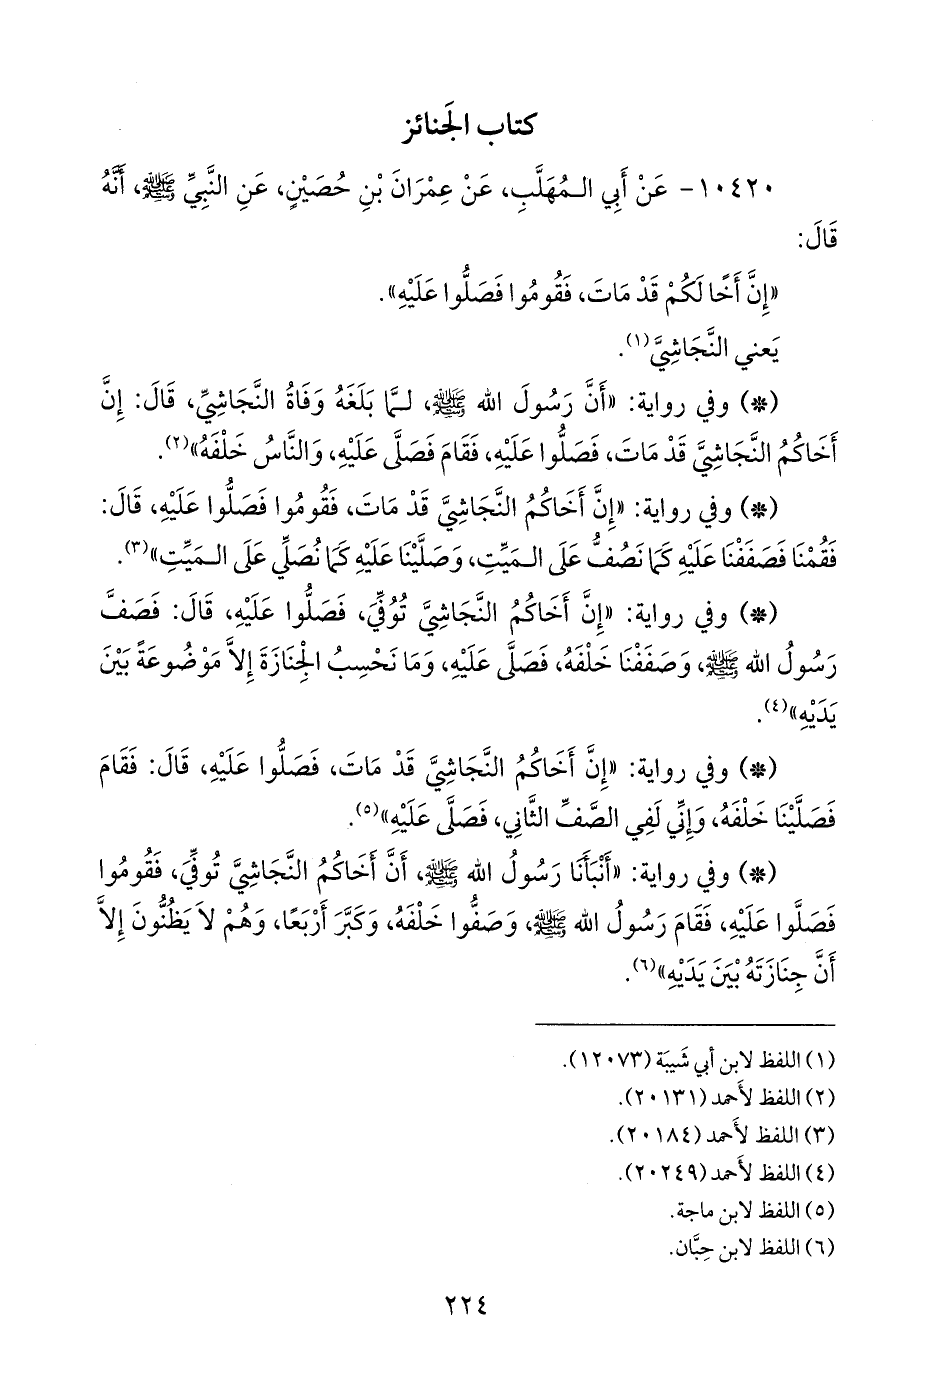 كتاب الجَنائز
١٠٤٢٠- عَنْ أَبِي الـمُهَلَّبِ، عَنْ عِمْرَانَ بْنِ حُصَيْنٍ، عَنِ النَّبِيِّ ﷺ، أَنَّهُ
قَالَ:
«إِنَّ أَخًا لَكُمْ قَدْ مَاتَ، فَقُومُوا فَصَلُّوا عَلَيْهِ».
يَعني النَّجَاشِيَّ(١).
(*) وفي رواية: «أَنَّ رَسُولَ الله ﷺ، لـمَّا بَلَغَهُ وَفَاةُ النَّجَاشِيِّ، قَالَ: إِنَّ
أَخَاكُمُ النَّجَاشِيَّ قَدْ مَاتَ، فَصَلُّوا عَلَيْهِ، فَقَامَ فَصَلَّى عَلَيْهِ، وَالنَّاسُ خَلْفَهُ»(٢).
(*) وفي رواية: «إِنَّ أَخَاكُمُ النَّجَاشِيَّ قَدْ مَاتَ، فَقُومُوا فَصَلُّوا عَلَيْهِ، قَالَ:
فَقُمْنَا فَصَفَفْنَا عَلَيْهِ كَمَا نَصُفُّ عَلَى الـمَيِّتِ، وَصَلَّيْنَا عَلَيْهِ كَمَا نُصَلِّي عَلَى الـمَيِّتِ»(٣).
(*) وفي رواية: «إِنَّ أَخَاكُمُ النَّجَاشِيَّ تُوُفِّيَ، فَصَلُّوا عَلَيْهِ، قَالَ: فَصَفَّ
رَسُولُ الله ﷺ، وَصَفَفْنَا خَلْفَهُ، فَصَلَّى عَلَيْهِ، وَمَا نَحْسِبُ الْجِنَازَةَ إِلاَّ مَوْضُوعَةً بَيْنَ
يَدَيْهِ»(٤).
(*) وفي رواية: «إِنَّ أَخَاكُمُ النَّجَاشِيَّ قَدْ مَاتَ، فَصَلُّوا عَلَيْهِ، قَالَ: فَقَامَ
فَصَلَّيْنَا خَلْفَهُ، وَإِنِّي لَفِي الصَّفِّ الثَّانِي، فَصَلَّى عَلَيْهِ»(٥).
(*) وفي رواية: «أَنْبَأَنَا رَسُولُ الله ﷺ، أَنَّ أَخَاكُمُ النَّجَاشِيَّ تُوفِّيَ، فَقُومُوا
فَصَلُّوا عَلَيْهِ، فَقَامَ رَسُولُ الله ﷺ، وَصَفُّوا خَلْفَهُ، وَكَبَّرَ أَرْبَعًا، وَهُمْ لاَ يَظُنُّونَ إِلاَّ
أَنَّ جِنَازَتَهُ بَيْنَ يَدَيْهِ»(٦).
(١) اللفظ لابن أبي شَيبَة (١٢٠٧٣).
(٢) اللفظ لأَحمد (٢٠١٣١).
(٣) اللفظ لأَحمد (٢٠١٨٤).
(٤) اللفظ لأَحمد (٢٠٢٤٩).
(٥) اللفظ لابن ماجة.
(٦) اللفظ لابن حِبَّان.
٢٢٤